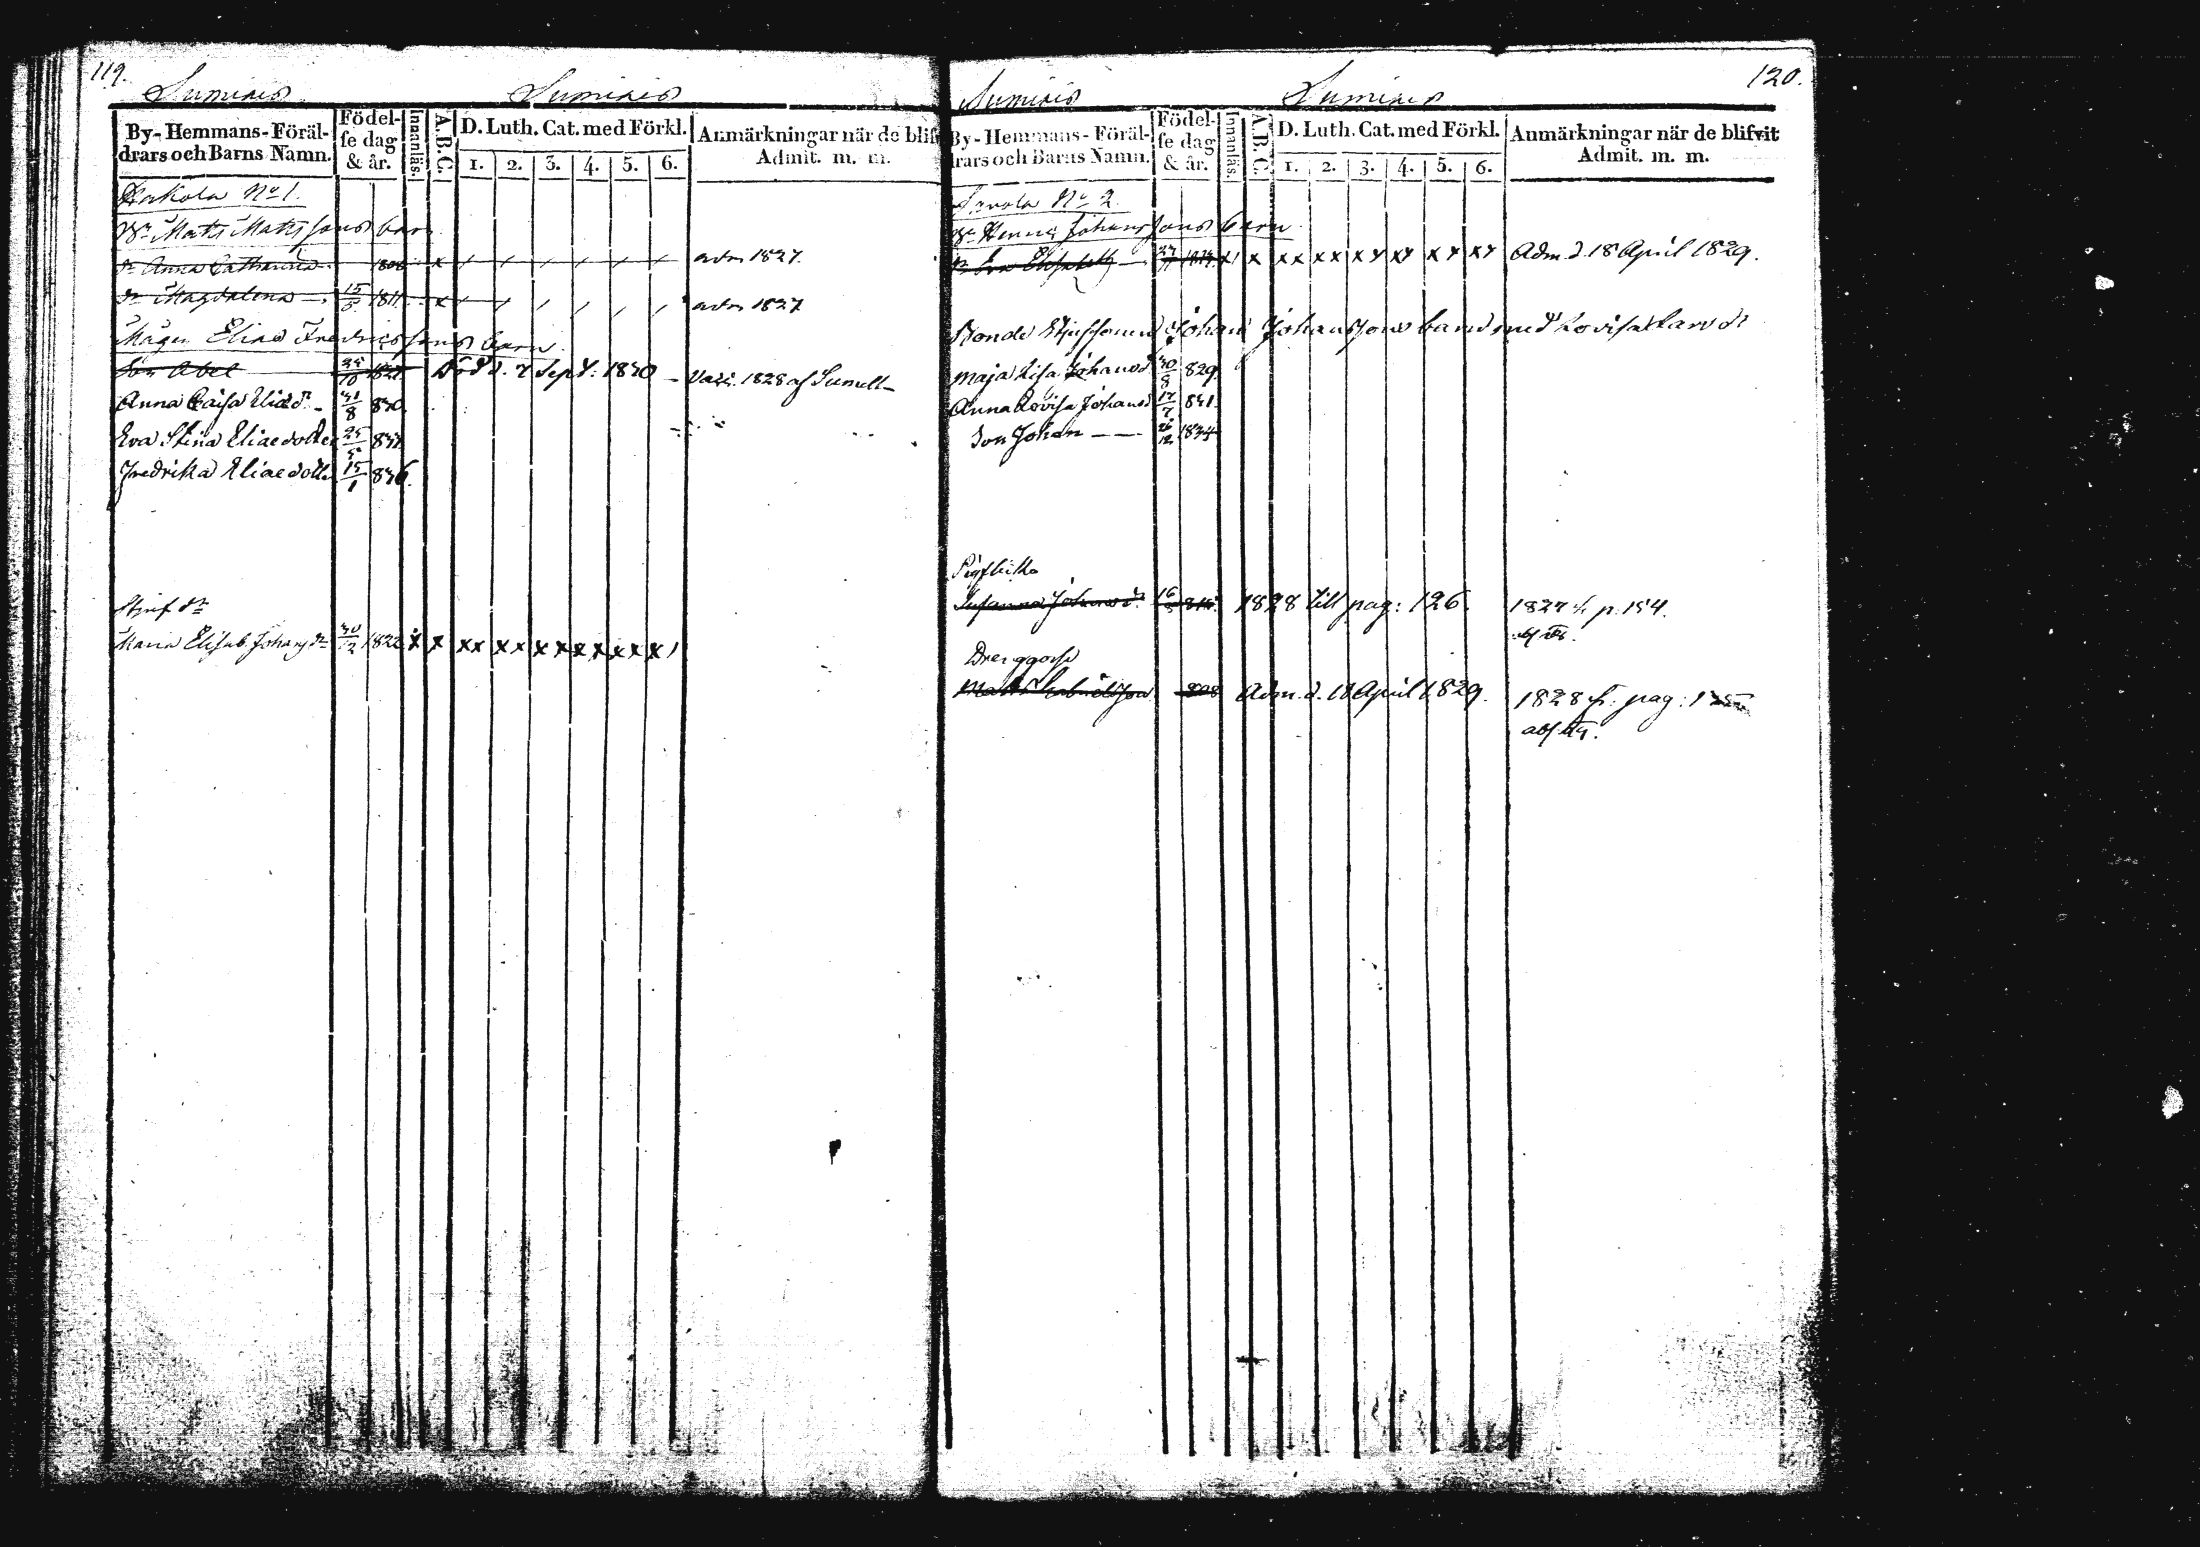 119.
Sumiais Sumiais
By-Hemmans-Föräl-drars och Barns Namn. Födel-se dag & år. Innanläs. A.B.C. D. Luth. Cat. med Förkl. 1. 2. 3. 4. 5. 6. Anmärkningar när de blif Admit. m. m.
No 1.
Matts Mattssons barn
dr Anna Catharina 1808 x / / / / / / adm 1827.
dr Magdalena 15/5 1811 x / / / / / / adm 1827
Mågen Elias Fredricssons barn
Son Abel 25/10 Död d. 7 Sept: 1830 Vacc. 1828 af
Anna Caisa Eliaed. 31/8 830.
Eva Stina Eliaedotter 25/5
Fredrika Eliaedott. 15/1 836.
Styf dr
Maria Elisab. Johansdr 1822 x x xx xx xx xx xx x/
120.
Sumiais Sumiais
By-Hemmans-Föräl-drars och Barns Namn. Födel-se dag & år. Innanläs. A.B.C. D. Luth. Cat. med Förkl. 1. 2. 3. 4. 5. 6. Anmärkningar när de blifvit Admit. m. m.
No 2.
Johanssons barn
dr Eva Elisabeth x xx xx xx xx xx xx Adm. d. 18 April 1829.
Bonde Johan Johanssons barn med Lovisa
Maja Lisa Johansd 30/8 829.
Anna Lovisa Johansd 17/7 831.
Son Johan — — 26/12 1834
Susanna Johansd. 16 1828 till pag: 126. 1827 fr p. 154.
Drenggosse
Matts Adm. d. 18 April 1829. 1828 fr: pag: